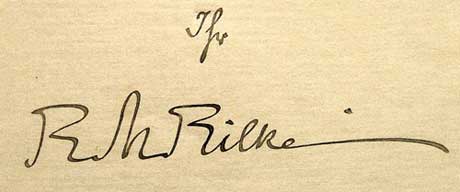 Ihr
RMRilke